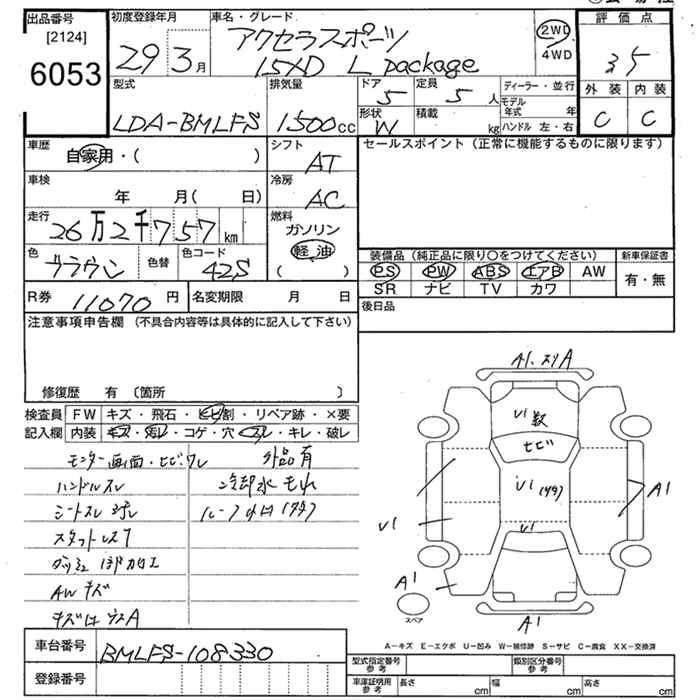 出品番号
[2124]
6053
初度登録年月
29 3月
車名・グレード
アクセラスポーツ
15XD L package
2WD
4WD
評価点
3.5
外装 内装
C C
型式
LDA-BMLFS
排気量
1500cc
ドア
5
定員
5人
形状
W
積載
kg
ディーラー・並行
モデル年式 年
ハンドル 左・右
車歴
自家用・( )
シフト
AT
車検
年 月( 日)
冷房
AC
走行
26万2千757km
燃料
ガソリン
軽油
( )
色
ブラウン
色替
色コード
42S
R券 11070円
名変期限 月 日
セールスポイント (正常に機能するものに限ります)
装備品 (純正品に限り○をつけてください)
新車保証書
PS PW ABS エアB AW
SR ナビ TV カワ
有・無
後日品
注意事項申告欄 (不具合内容等は具体的に記入して下さい)
修復歴 有 〔箇所 〕
検査員
記入欄
FW キズ・飛石・ヒビ割・リペア跡・×要
内装 キズ・汚レ・コゲ・穴・スレ・キレ・破レ
モニター画面・ヒビワレ 外品有
ハンドルスレ 冷却水もれ
シートスレ
スタットレス
ダッシュ 1部加工
AW キズ
A1
U1
ヒビ
U1
U1
A1
U1
A1
スペア
A1
A-キズ E-エクボ U-凹み W-補修跡 S-サビ C-腐食 XX-交換済
車台番号 BMLFS-108330
登録番号
型式指定番号
参考
類別区分番号
参考
車庫証明用
参考
長さ cm 幅 cm 高さ cm